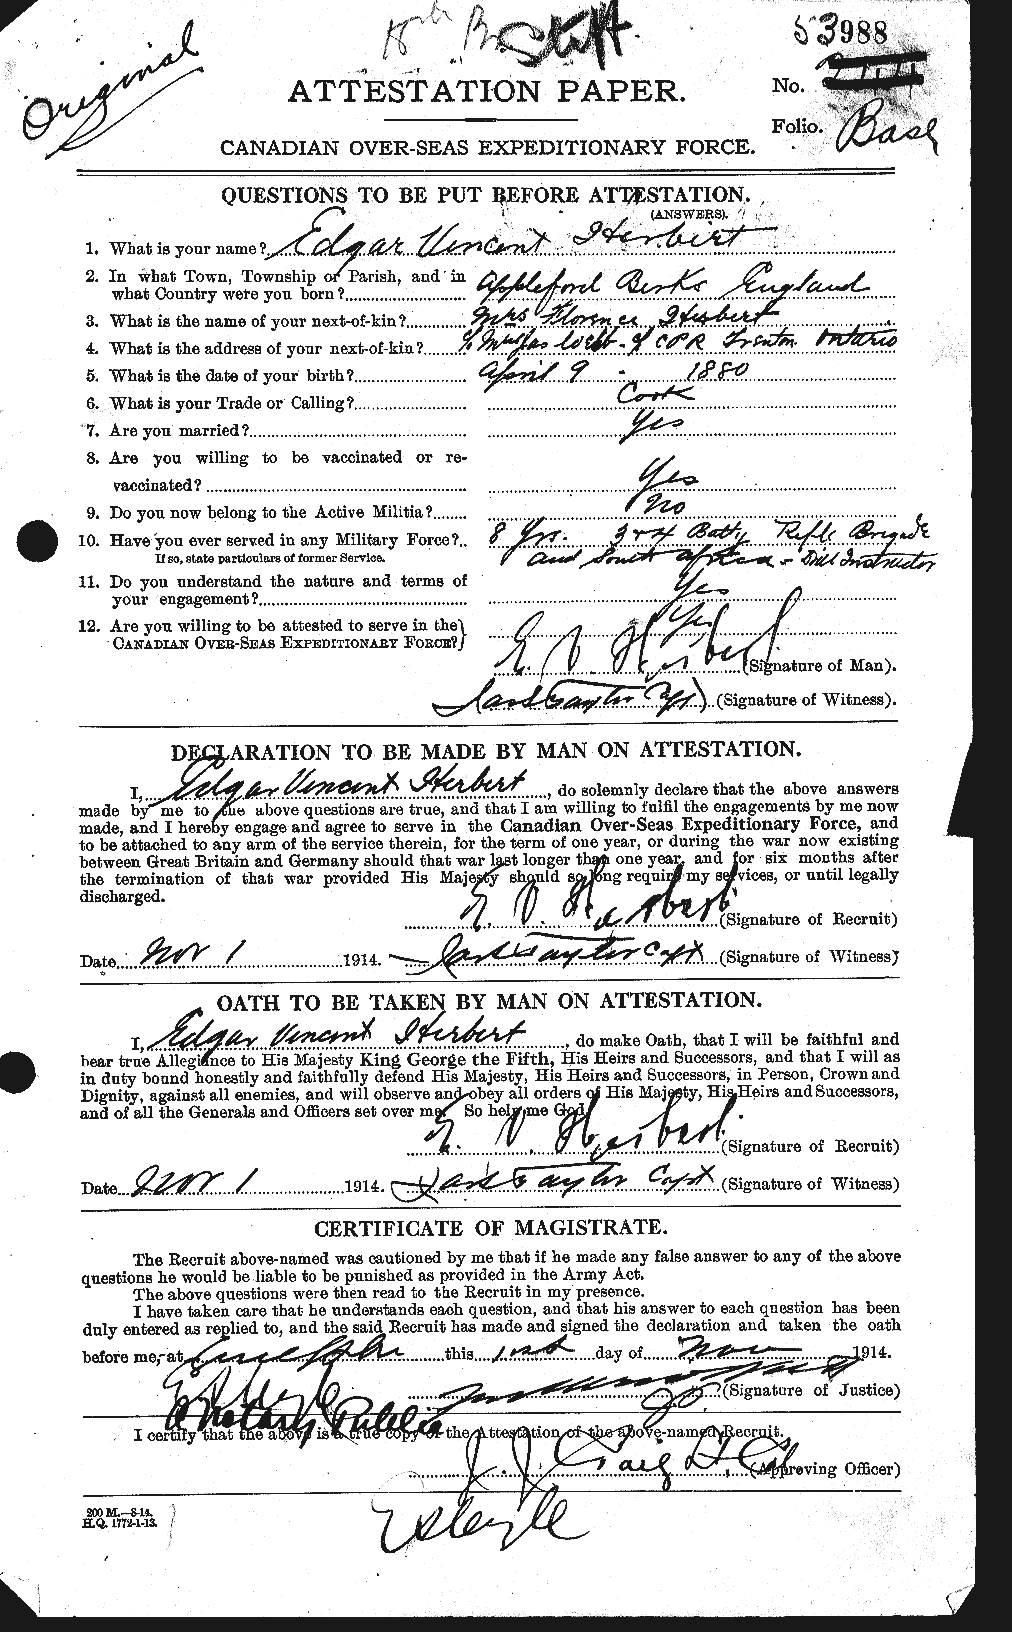 Original
Staff
53988
ATTESTATION PAPER.
No.
Folio. Base
CANADIAN OVER-SEAS EXPEDITIONARY FORCE.
QUESTIONS TO BE PUT BEFORE ATTESTATION.
(ANSWERS).
1. What is your name? Edgar Vincent Herbert
2. In what Town, Township or Parish, and in
what Country were you born? Appleford Berks England
3. What is the name of your next-of-kin? Mrs Florence Herbert
4. What is the address of your next-of-kin? CPR Trenton Ontario
5. What is the date of your birth? April 9 - 1880
6. What is your Trade or Calling? Cook
7. Are you married? Yes
8. Are you willing to be vaccinated or re-
vaccinated? Yes
9. Do you now belong to the Active Militia? No
10. Have you ever served in any Military Force? 8 Yrs. 3rd Batty Rifle Brigade
If so, state particulars of former Service. and South Africa - Drill Instructor
11. Do you understand the nature and terms of
your engagement? Yes
12. Are you willing to be attested to serve in the
CANADIAN OVER-SEAS EXPEDITIONARY FORCE? Yes
E. V. Herbert (Signature of Man).
Taylor Capt (Signature of Witness).
DECLARATION TO BE MADE BY MAN ON ATTESTATION.
I, Edgar Vincent Herbert, do solemnly declare that the above answers
made by me to the above questions are true, and that I am willing to fulfil the engagements by me now
made, and I hereby engage and agree to serve in the Canadian Over-Seas Expeditionary Force, and
to be attached to any arm of the service therein, for the term of one year, or during the war now existing
between Great Britain and Germany should that war last longer than one year, and for six months after
the termination of that war provided His Majesty should so long require my services, or until legally
discharged.
E. V. Herbert (Signature of Recruit)
Date Nov 1 1914. Taylor Capt (Signature of Witness)
OATH TO BE TAKEN BY MAN ON ATTESTATION.
I, Edgar Vincent Herbert, do make Oath, that I will be faithful and
bear true Allegiance to His Majesty King George the Fifth, His Heirs and Successors, and that I will as
in duty bound honestly and faithfully defend His Majesty, His Heirs and Successors, in Person, Crown and
Dignity, against all enemies, and will observe and obey all orders of His Majesty, His Heirs and Successors,
and of all the Generals and Officers set over me. So help me God.
E. V. Herbert (Signature of Recruit)
Date Nov 1 1914. Taylor Capt (Signature of Witness)
CERTIFICATE OF MAGISTRATE.
The Recruit above-named was cautioned by me that if he made any false answer to any of the above
questions he would be liable to be punished as provided in the Army Act.
The above questions were then read to the Recruit in my presence.
I have taken care that he understands each question, and that his answer to each question has been
duly entered as replied to, and the said Recruit has made and signed the declaration and taken the oath
before me, at Guelph this 1st day of Nov 1914.
(Signature of Justice)
A Notary Public
I certify that the above is a true copy of the Attestation of the above-named Recruit.
J. J. Craig (Approving Officer)
200 M.—8-14.
H.Q. 1772-1-13.